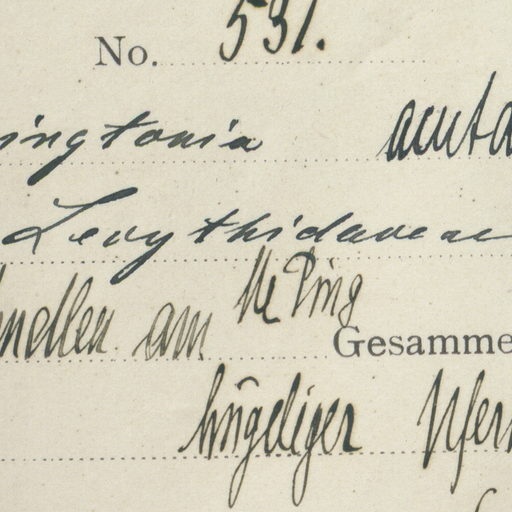 No. 531.
ingtonia acuta
Lecythidaceae
am Me Ping
Gesamme
hügeliger Ufer